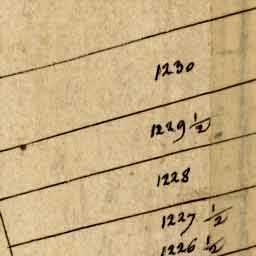 1230
1229 ½
1228
1227 ½
1226 ½